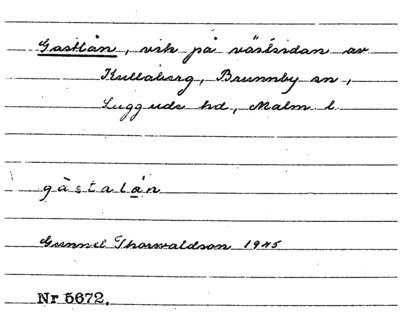 Gastlån, vik på västsidan av
Kullaberg, Brunnby sn,
Luggude hd, Malm l.
gàstalån
Gunnel Thorwaldson 1945
Nr 5672.